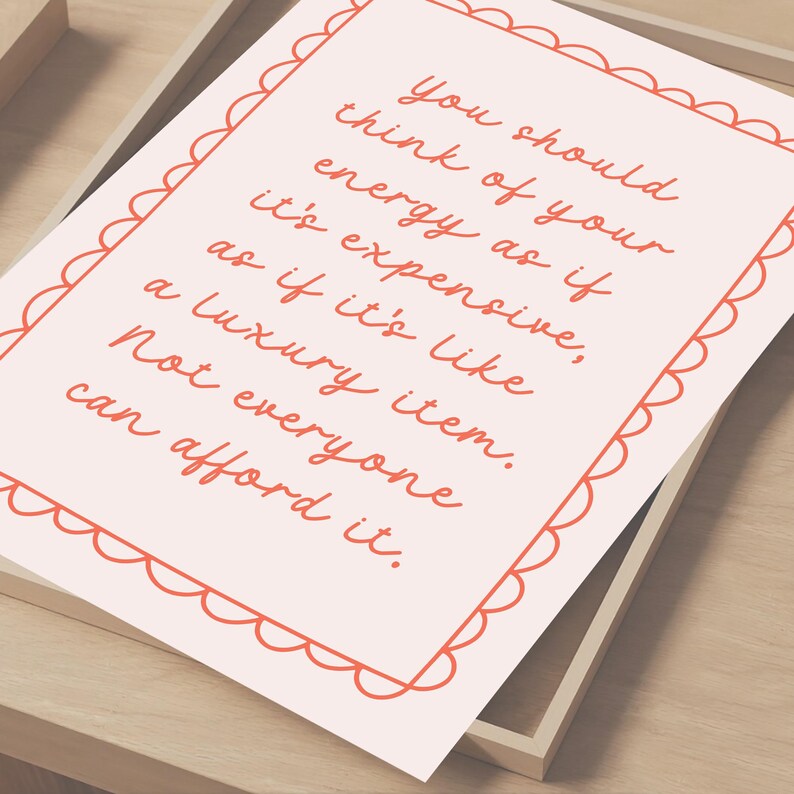 You should
think of your
energy as if
it's expensive,
as if it's like
a luxury item.
Not everyone
can afford it.